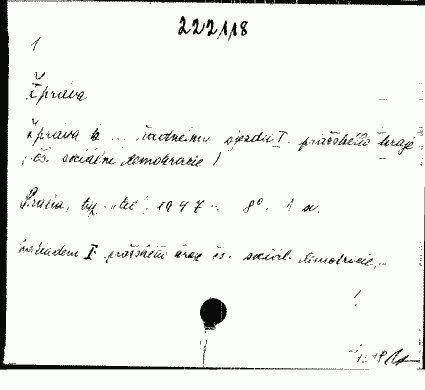 222118
1
Zpráva
Zpráva k ... řádnému sjezdu I. pražského kraje
(čs. sociální demokracie)
Praha, typ. 1947 8° 1 sv.
nákladem I. pražského kraje čs. sociál. demokracie,